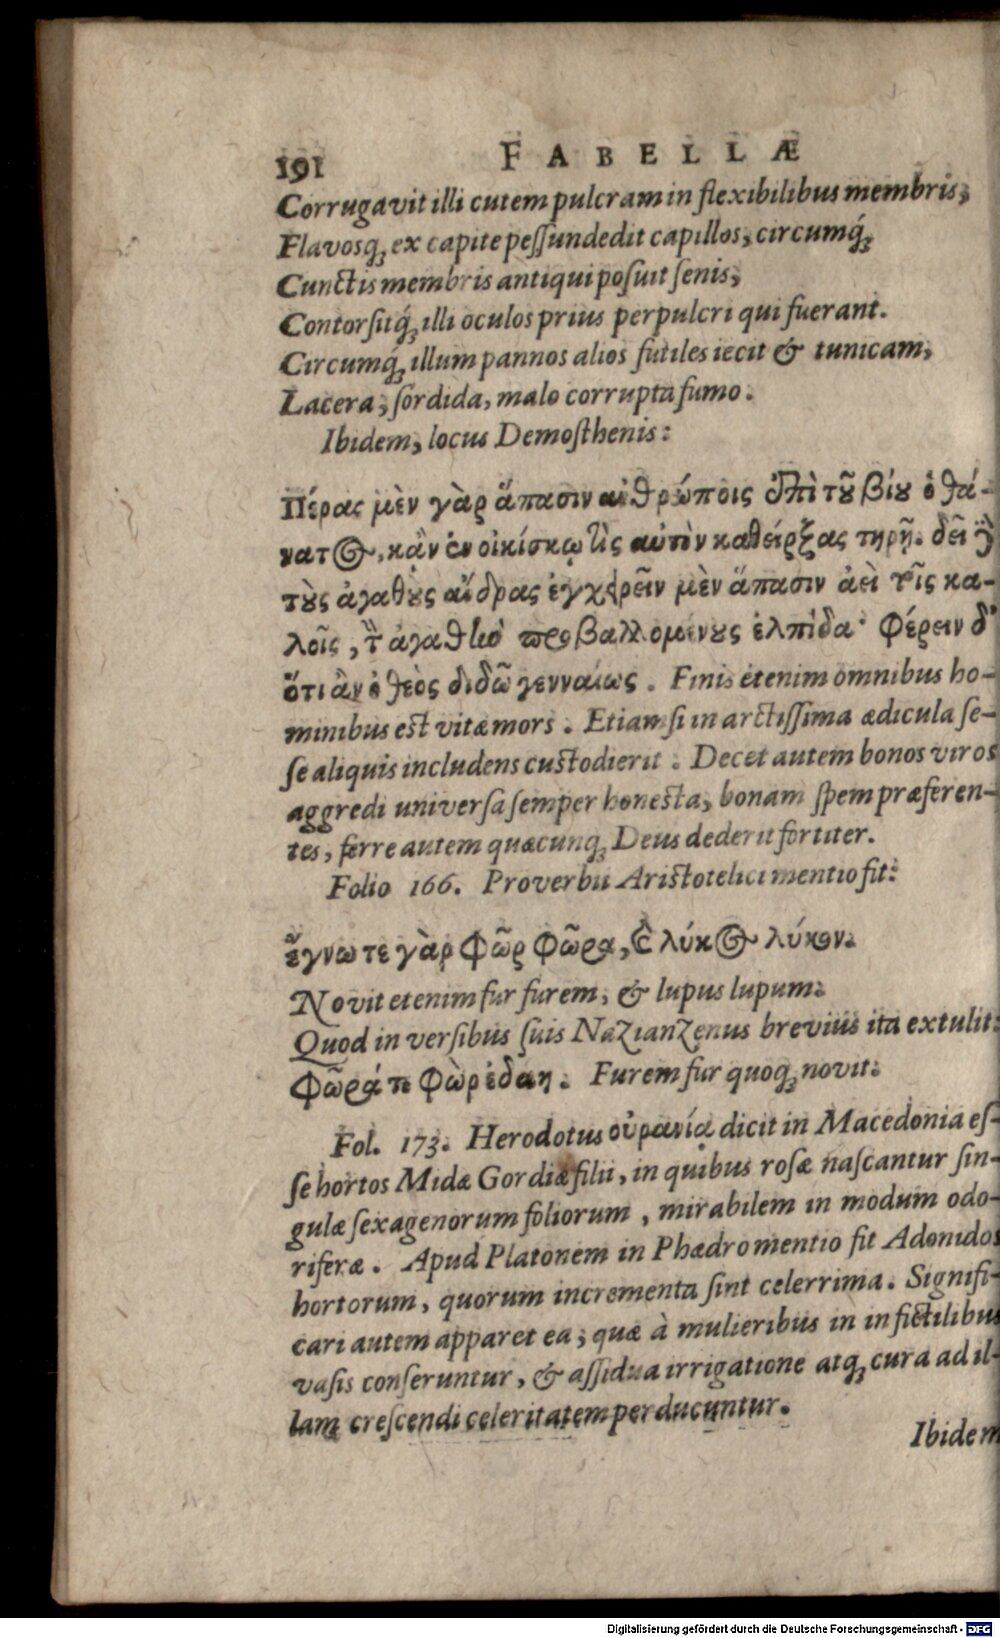 191 FABELLÆ
Corrugavit illi cutem pulcram in flexibilibus membris,
Flavosq́; ex capite peſſundedit capillos, circumq́;
Cunctis membris antiqui poſuit ſenis,
Contorſitq́; illi oculos prius perpulcri qui fuerant.
Circumq́; illum pannos alios futiles iecit & tunicam,
Lacera, ſordida, malo corrupta fumo.
Ibidem, locus Demoſthenis:
Πέρας μὲν γὰρ ἅπασιν ἀνθρώποις ἐπὶ τοῦ βίου ὁ θά-
νατος, κἂν ἐν οἰκίσκῳ τὶς αὑτὸν καθείρξας τηρῇ. δεῖ δὲ
τοὺς ἀγαθοὺς ἄνδρας ἐγχειρεῖν μὲν ἅπασιν ἀεὶ τοῖς κα-
λοῖς, τὴν ἀγαθὴν προβαλλομένους ἐλπίδα· Φέρειν δ'
ὅτι ἂν ὁ θεὸς διδῶ γενναίως. Finis etenim omnibus ho-
minibus est vitæ mors. Etiamſi in arctiſſima ædicula ſe-
ſe aliquis includens custodierit. Decet autem bonos viros
aggredi univerſa ſemper honesta, bonam ſpem præferen-
tes, ferre autem quæcunq; Deus dederit fortiter.
Folio 166. Proverbii Aristotelici mentio fit:
ἔγνω τε γὰρ Φῶρ Φῶρα, καὶ λύκος λύκον.
Novit etenim fur furem, & lupus lupum.
Quod in verſibus ſuis Nazianzenus brevius ita extulit:
Φῶρά τε Φὼρ ἐδάη. Furem fur quoq; novit.
Fol. 173. Herodotus οὐρανίᾳ dicit in Macedonia eſ-
ſe hortos Midæ Gordiæ filii, in quibus roſæ naſcantur ſin-
gulæ ſexagenorum foliorum, mirabilem in modum odo-
riferæ. Apud Platonem in Phædro mentio fit Adonidos
hortorum, quorum incrementa ſint celerrima. Signifi-
cari autem apparet ea, quæ à mulieribus in in fictilibus
vaſis conſeruntur, & aſſidua irrigatione atq; cura ad il-
lam creſcendi celeritatem perducuntur.
Ibidem
Digitalisierung gefördert durch die Deutsche Forschungsgemeinschaft - DFG